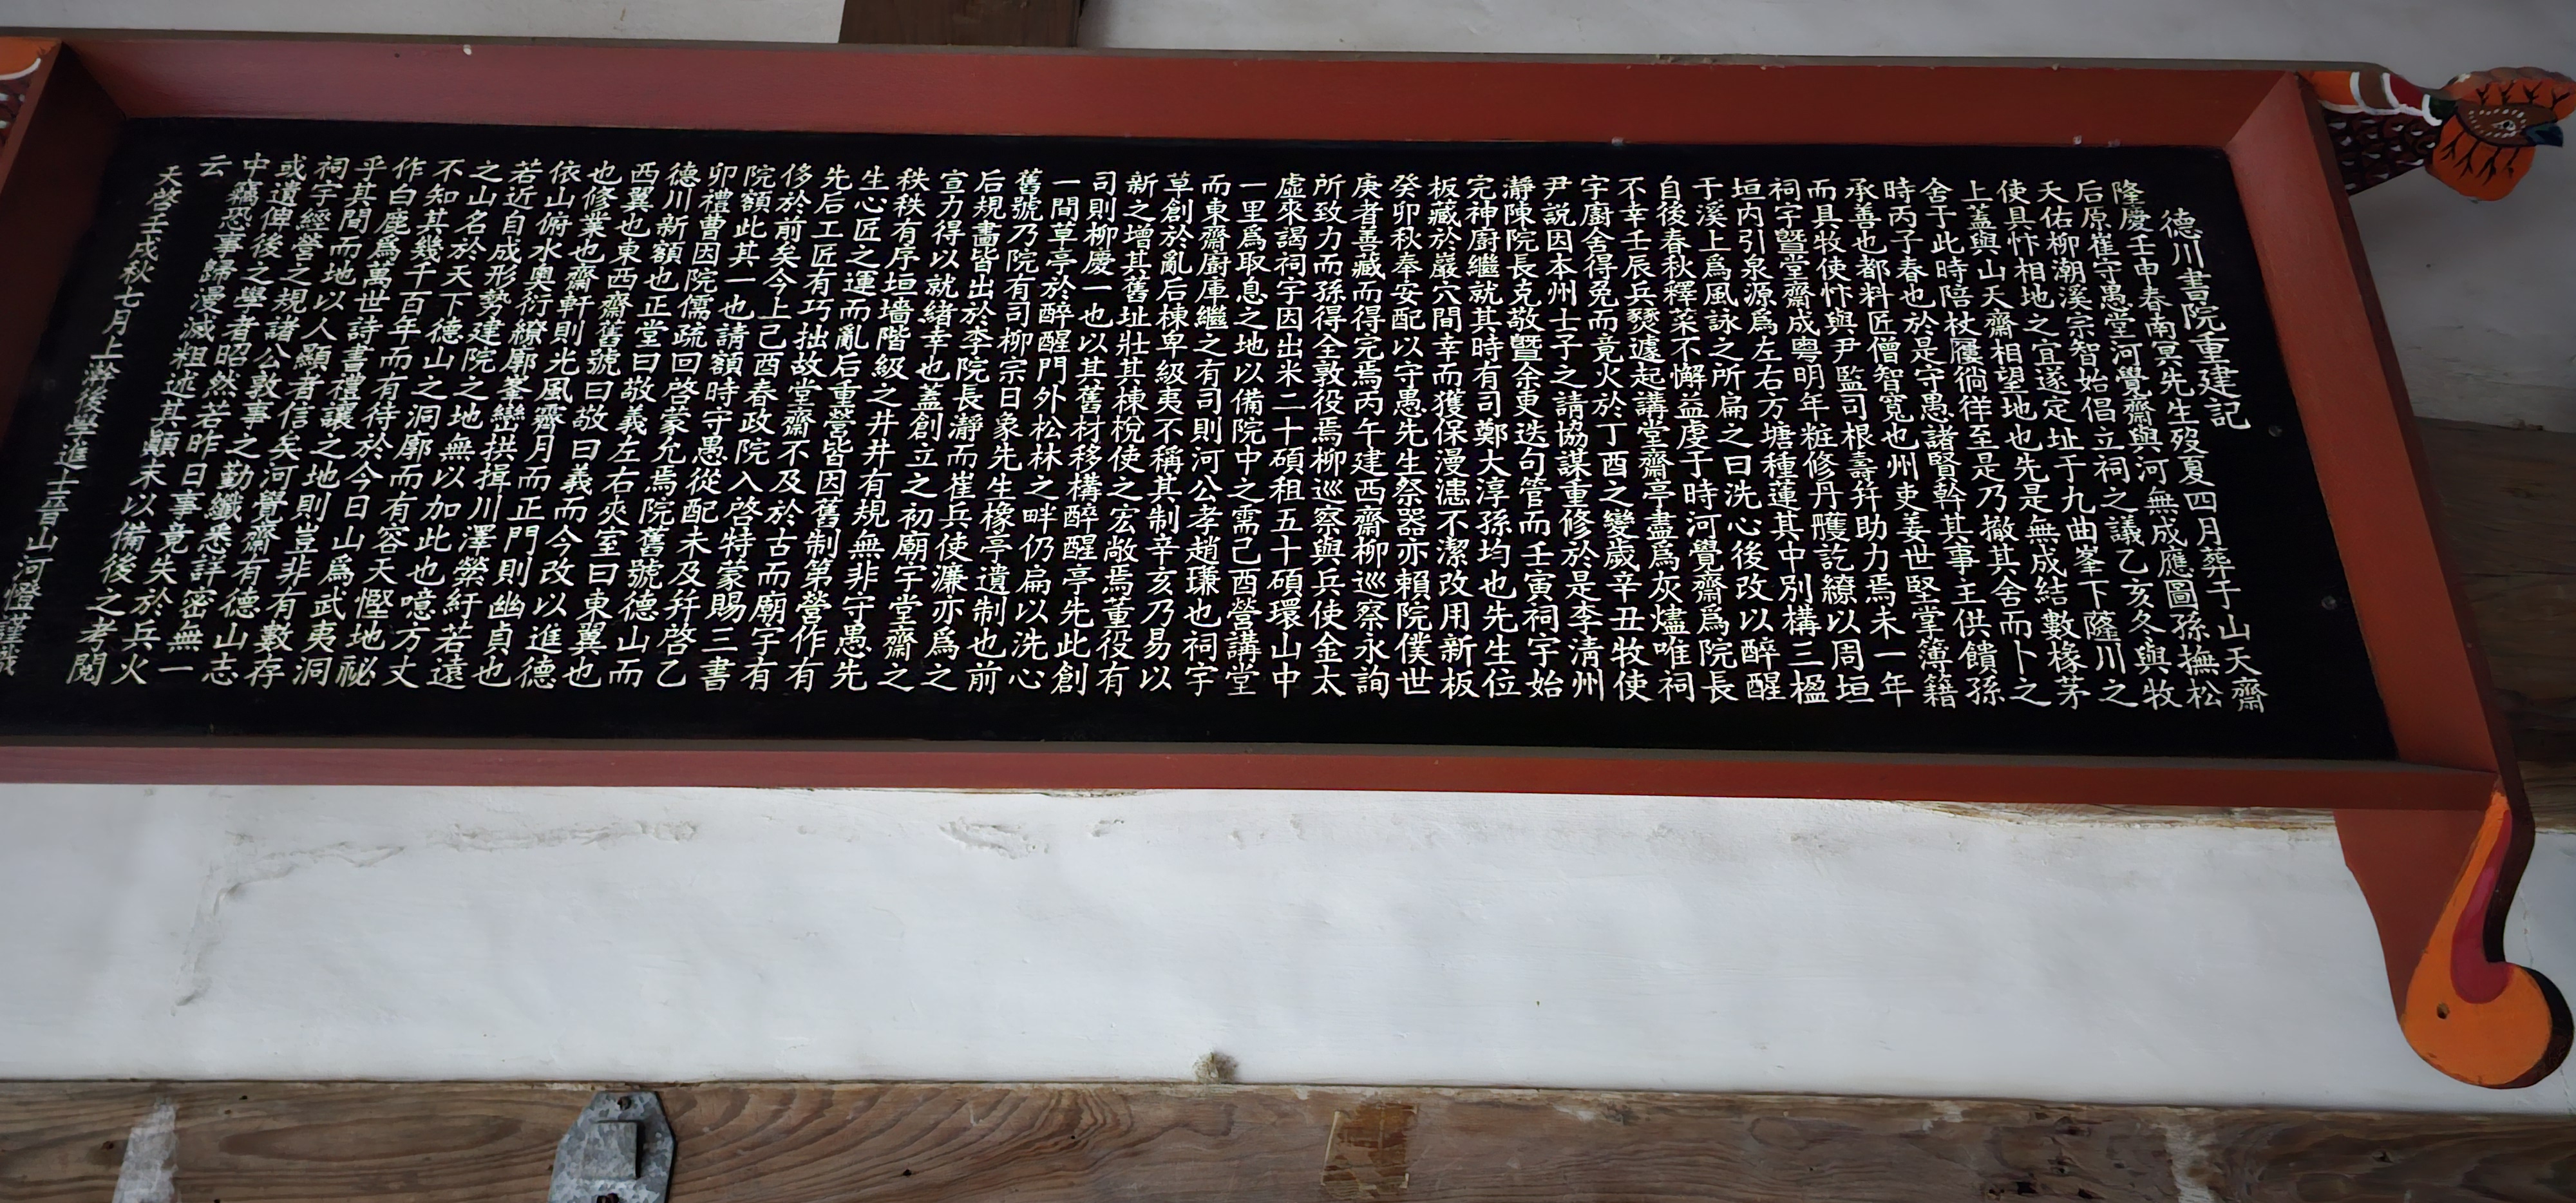 德川書院重建記
隆慶壬申春南冥先生歿夏四月葬于山天齋
后原崔守愚堂河覺齋與河無成應圖孫撫松
天佑柳潮溪宗智始倡立祠之議乙亥冬與牧
使具忭相地之宜遂定址于九曲峯下薩川之
上蓋與山天齋相望地也先是無成結數椽茅
舍于此時陪杖屨徜徉至是乃撤其舍而卜之
時丙子春也於是守愚諸賢幹其事主供饋孫
承善也都料匠僧智寬也州吏姜世堅掌簿籍
而具牧使忭與尹監司根壽幷助力焉未一年
祠宇曁堂齋成粤明年粧修丹雘訖繚以周垣
垣内引泉源爲左右方塘種蓮其中別構三楹
于溪上爲風詠之所扁之曰洗心後改以醉醒
自後春秋釋菜不懈益虔于時河覺齋爲院長
不幸壬辰兵燹遽起講堂齋亭盡爲灰燼唯祠
宇廚舍得免而竟火於丁酉之變歲辛丑牧使
尹説因本州士子之請協謀重修於是李清州
瀞陳院長克敬曁余更迭句管而壬寅祠宇始
完神廚繼就其時有司鄭大淳孫均也先生位
板藏於巖穴間幸而獲保漫漶不潔改用新板
癸卯秋奉安配以守愚先生祭器亦賴院僕世
庚者善藏而得完焉丙午建西齋柳巡察永詢
所致力而孫得全敦役焉柳巡察與兵使金太
虛來謁祠宇因出米二十碩租五十碩環山中
一里爲取息之地以備院中之需己酉營講堂
而東齋廚庫繼之有司則河公孝趙㻩也祠宇
草創於亂后棟卑級夷不稱其制辛亥乃易以
新之增其舊址壯其棟梲使之宏敞焉董役有
司則柳慶一也以其舊材移構醉醒亭先此創
一間草亭於醉醒門外松林之畔仍扁以洗心
舊號乃院有司柳宗日象先生橡亭遺制也前
后規畵皆出於李院長瀞而崔兵使濂亦爲之
宣力得以就緒幸也蓋創立之初廟宇堂齋之
秩秩有序垣墻階級之井井有規無非守愚先
生心匠之運而亂后重營皆因舊制第營作有
先后工匠有巧拙故堂齋不及於古而廟宇有
侈於前矣今上己酉春政院入啓特蒙賜三書
院額此其一也請額時守愚從配未及幷啓乙
卯禮曹因院儒疏回啓蒙允焉院舊號德山而
德川新額也正堂曰敬義左右夾室曰東翼也
西翼也東西齋舊號曰敬曰義而今改以進德
也修業也齋軒則光風霽月而正門則幽貞也
依山俯水奥衍繚廓峯巒拱揖川澤縈紆若遠
若近自成形勢建院之地無以加此也噫方丈
之山名於天下德山之洞廓而有容天慳地祕
不知其幾千百年而有待於今日山爲武夷洞
作白鹿爲萬世詩書禮讓之地則豈非有數存
乎其間而地以人顯者信矣河覺齋有德山志
祠宇經營之規諸公敦事之勤纖悉詳密無一
或遺俾後之學者昭然若昨日事竟失於兵火
中竊恐事歸漫滅粗述其顚末以備後之考閲
云
天啓壬戌秋七月上澣後學進士晉山河憕謹識